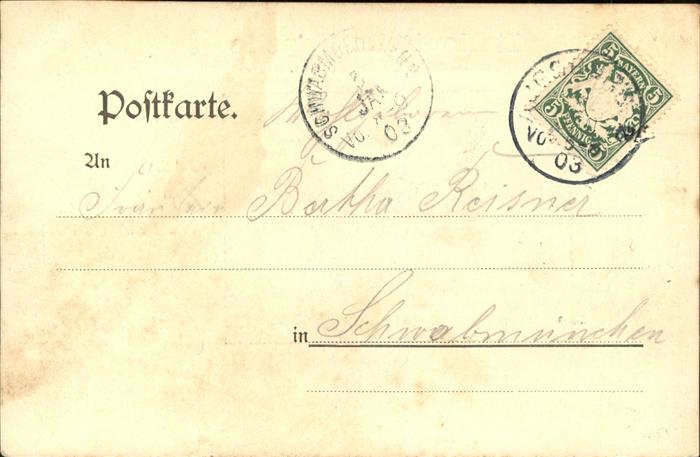 Postkarte.
SCHWABMÜNCHEN
JAN
03
5 BAYERN 5
5 PFENNIG 5
03
An
Fräulein Bertha Reisner
in Schwabmünchen